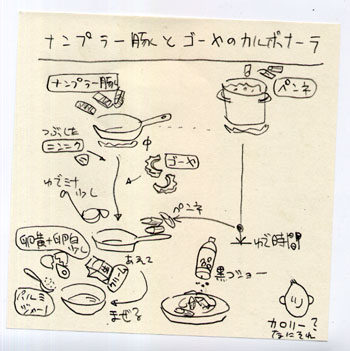 ナンプラー豚とゴーヤのカルボナーラ
ナンプラー豚
ペンネ
つぶした
ニンニク
ゴーヤ
ゆで汁
少し
ペンネ
ゆで時間
卵黄+卵白
少し
あえて
黒コショー
パルミ
ジャーノ
まぜる
カロリー?
なにそれ